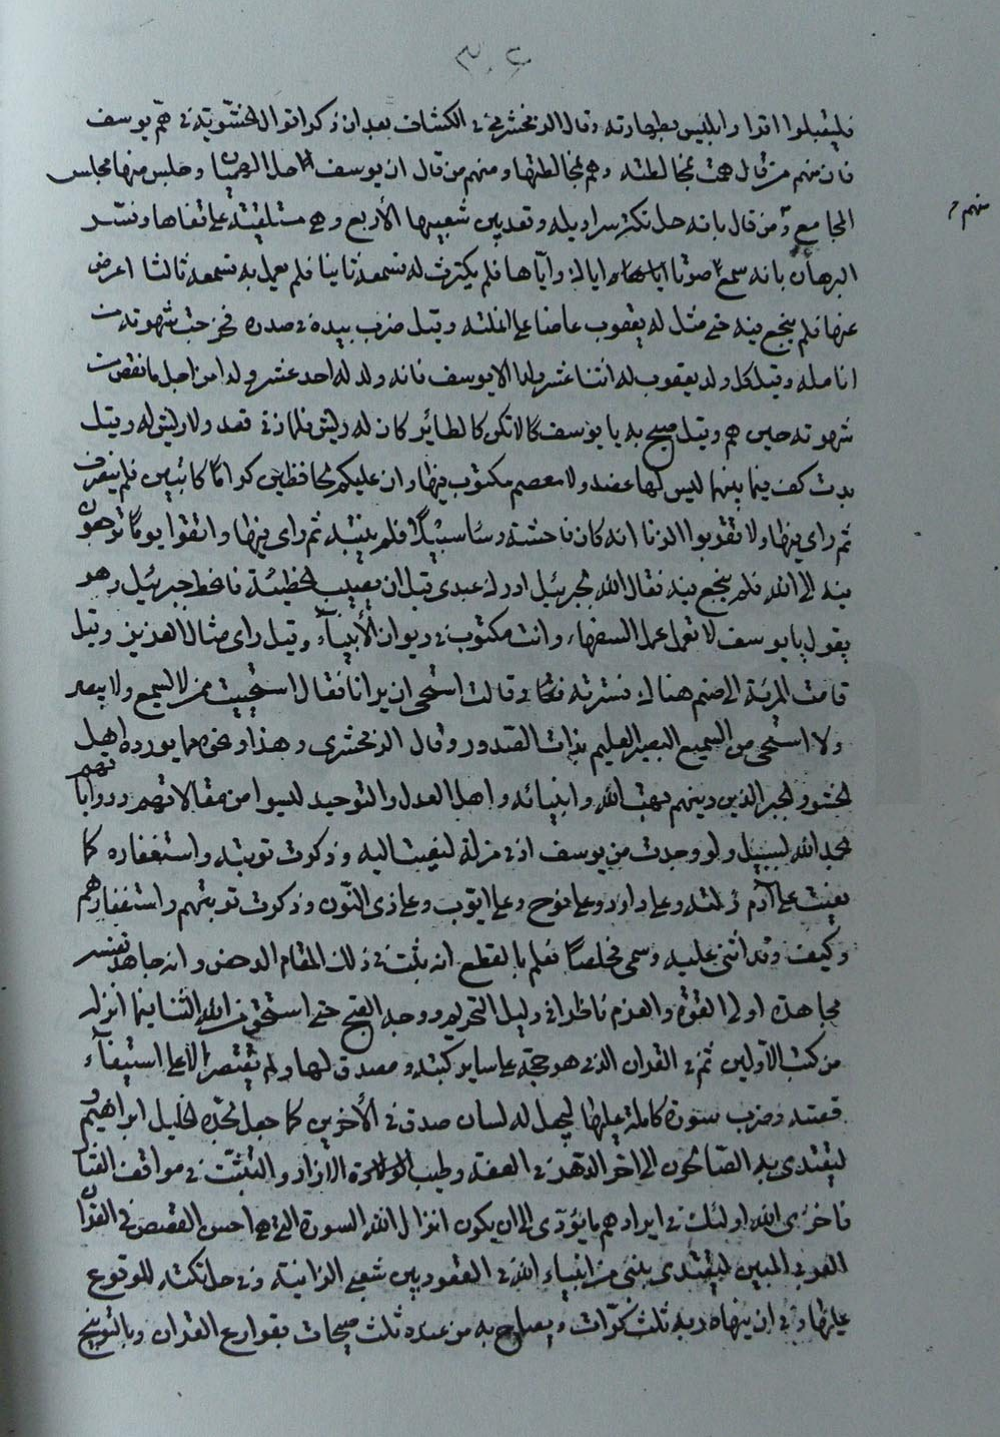 ٣٠٤
فليقبلوا اقرار ابليس بطهارته وقال الزمخشري في الكشاف بعد ان ذكر اقوال الحشوية في هم يوسف
فان منهم من قال همت بمخالطته وهم بمخالطتها ومنهم من قال ان يوسف حل الهميان وجلس منها مجلس
المجامع ومن قال بانه حل تكة سراويله وقعد بين شعبها الأربع وهي مستلقية على قفاها وفسر
منهم
البرهان بانه سمع صوتا اياك واياها فلم يكترث له فسمعه ثانيا فلم يعمل به فسمعه ثالثا اعرض
عنها فلم ينجع فيه حتى مثل له يعقوب عاضا على انملته وقيل ضرب بيده في صدره فخرجت شهوته من
انامله وقيل كل ولد يعقوب له اثنا عشر ولدا الا يوسف فانه ولد له احد عشر ولدا من اجل ما نقص من
شهوته حين هم وقيل صيح به يا يوسف لا تكن كالطائر كان له ريش فلما زنى قعد ولا ريش له وقيل
بدت كف فيما بينهما ليس لها عضد ولا معصم مكتوب فيها وان عليكم لحافظين كراما كاتبين فلم ينصرف
ثم راى فيها ولا تقربوا الزنا انه كان فاحشة وساء سبيلا فلم ينته ثم راى فيها واتقوا يوما ترجعون
فيه الى الله فلم ينجع فيه فقال الله لجبرئيل ادرك عبدي قبل ان يصيب الخطيئة فانحط جبرئيل وهو
يقول يا يوسف لا تعمل عمل السفهاء وانت مكتوب في ديوان الأنبياء وقيل راى مثال العزيز وقيل
قامت المرئة الى صنم هناك فسترته وقالت استحى ان يرانا فقال استحييت ممن لا يسمع ولا يبصر
ولا استحى من السميع البصير العليم بذات الصدور وقال الزمخشري وهذا ونحوه مما يورده اهل
الحشو والجبر الذين دينهم بهت الله وانبيائه واهل العدل والتوحيد ليسوا من مقالاتهم ورواياتهم
بحمد الله بسبيل ولو وجدت من يوسف ادنى زلة لنعيت اليه وذكرت توبته واستغفاره كما
نعيت على آدم زلته وعلى داود وعلى نوح وعلى ايوب وعلى ذى النون وذكرت توبتهم واستغفارهم
وكيف وقد اثنى عليه وسمى مخلصا فعلم بالقطع انه ثبت في ذلك المقام الدحض وانه جاهد نفسه
مجاهدة اولى القوة والعزم ناظرا في دليل التحريم ووجه القبح حتى استحق من الله الثنا فيما انزل
من كتب الأولين ثم في القران الذى هو حجة على ساير كتبه ومصدق لها ولم يقتصر الا على استيفاء
قصته وضرب سورة كاملة عليها ليجعل له لسان صدق في الأخرين كما جعله لجده الخليل ابراهيم و
ليقتدى به الصالحون الى اخر الدهر في العفة وطيب الازار والتثبت في مواقف العثار
فاخزى الله اولئك في ايرادهم ما يؤدى الى ان يكون انزال الله السورة التى هي احسن القصص في القران
العربي المبين ليقتدى بنبي من انبياء الله في القعود بين شعب الزانية وفي حل تكته للوقوع
عليها وفي ان ينهاه ربه ثلث كرات ويصاح به من عنده ثلث صيحات بقوارع القران وبالتوبيخ